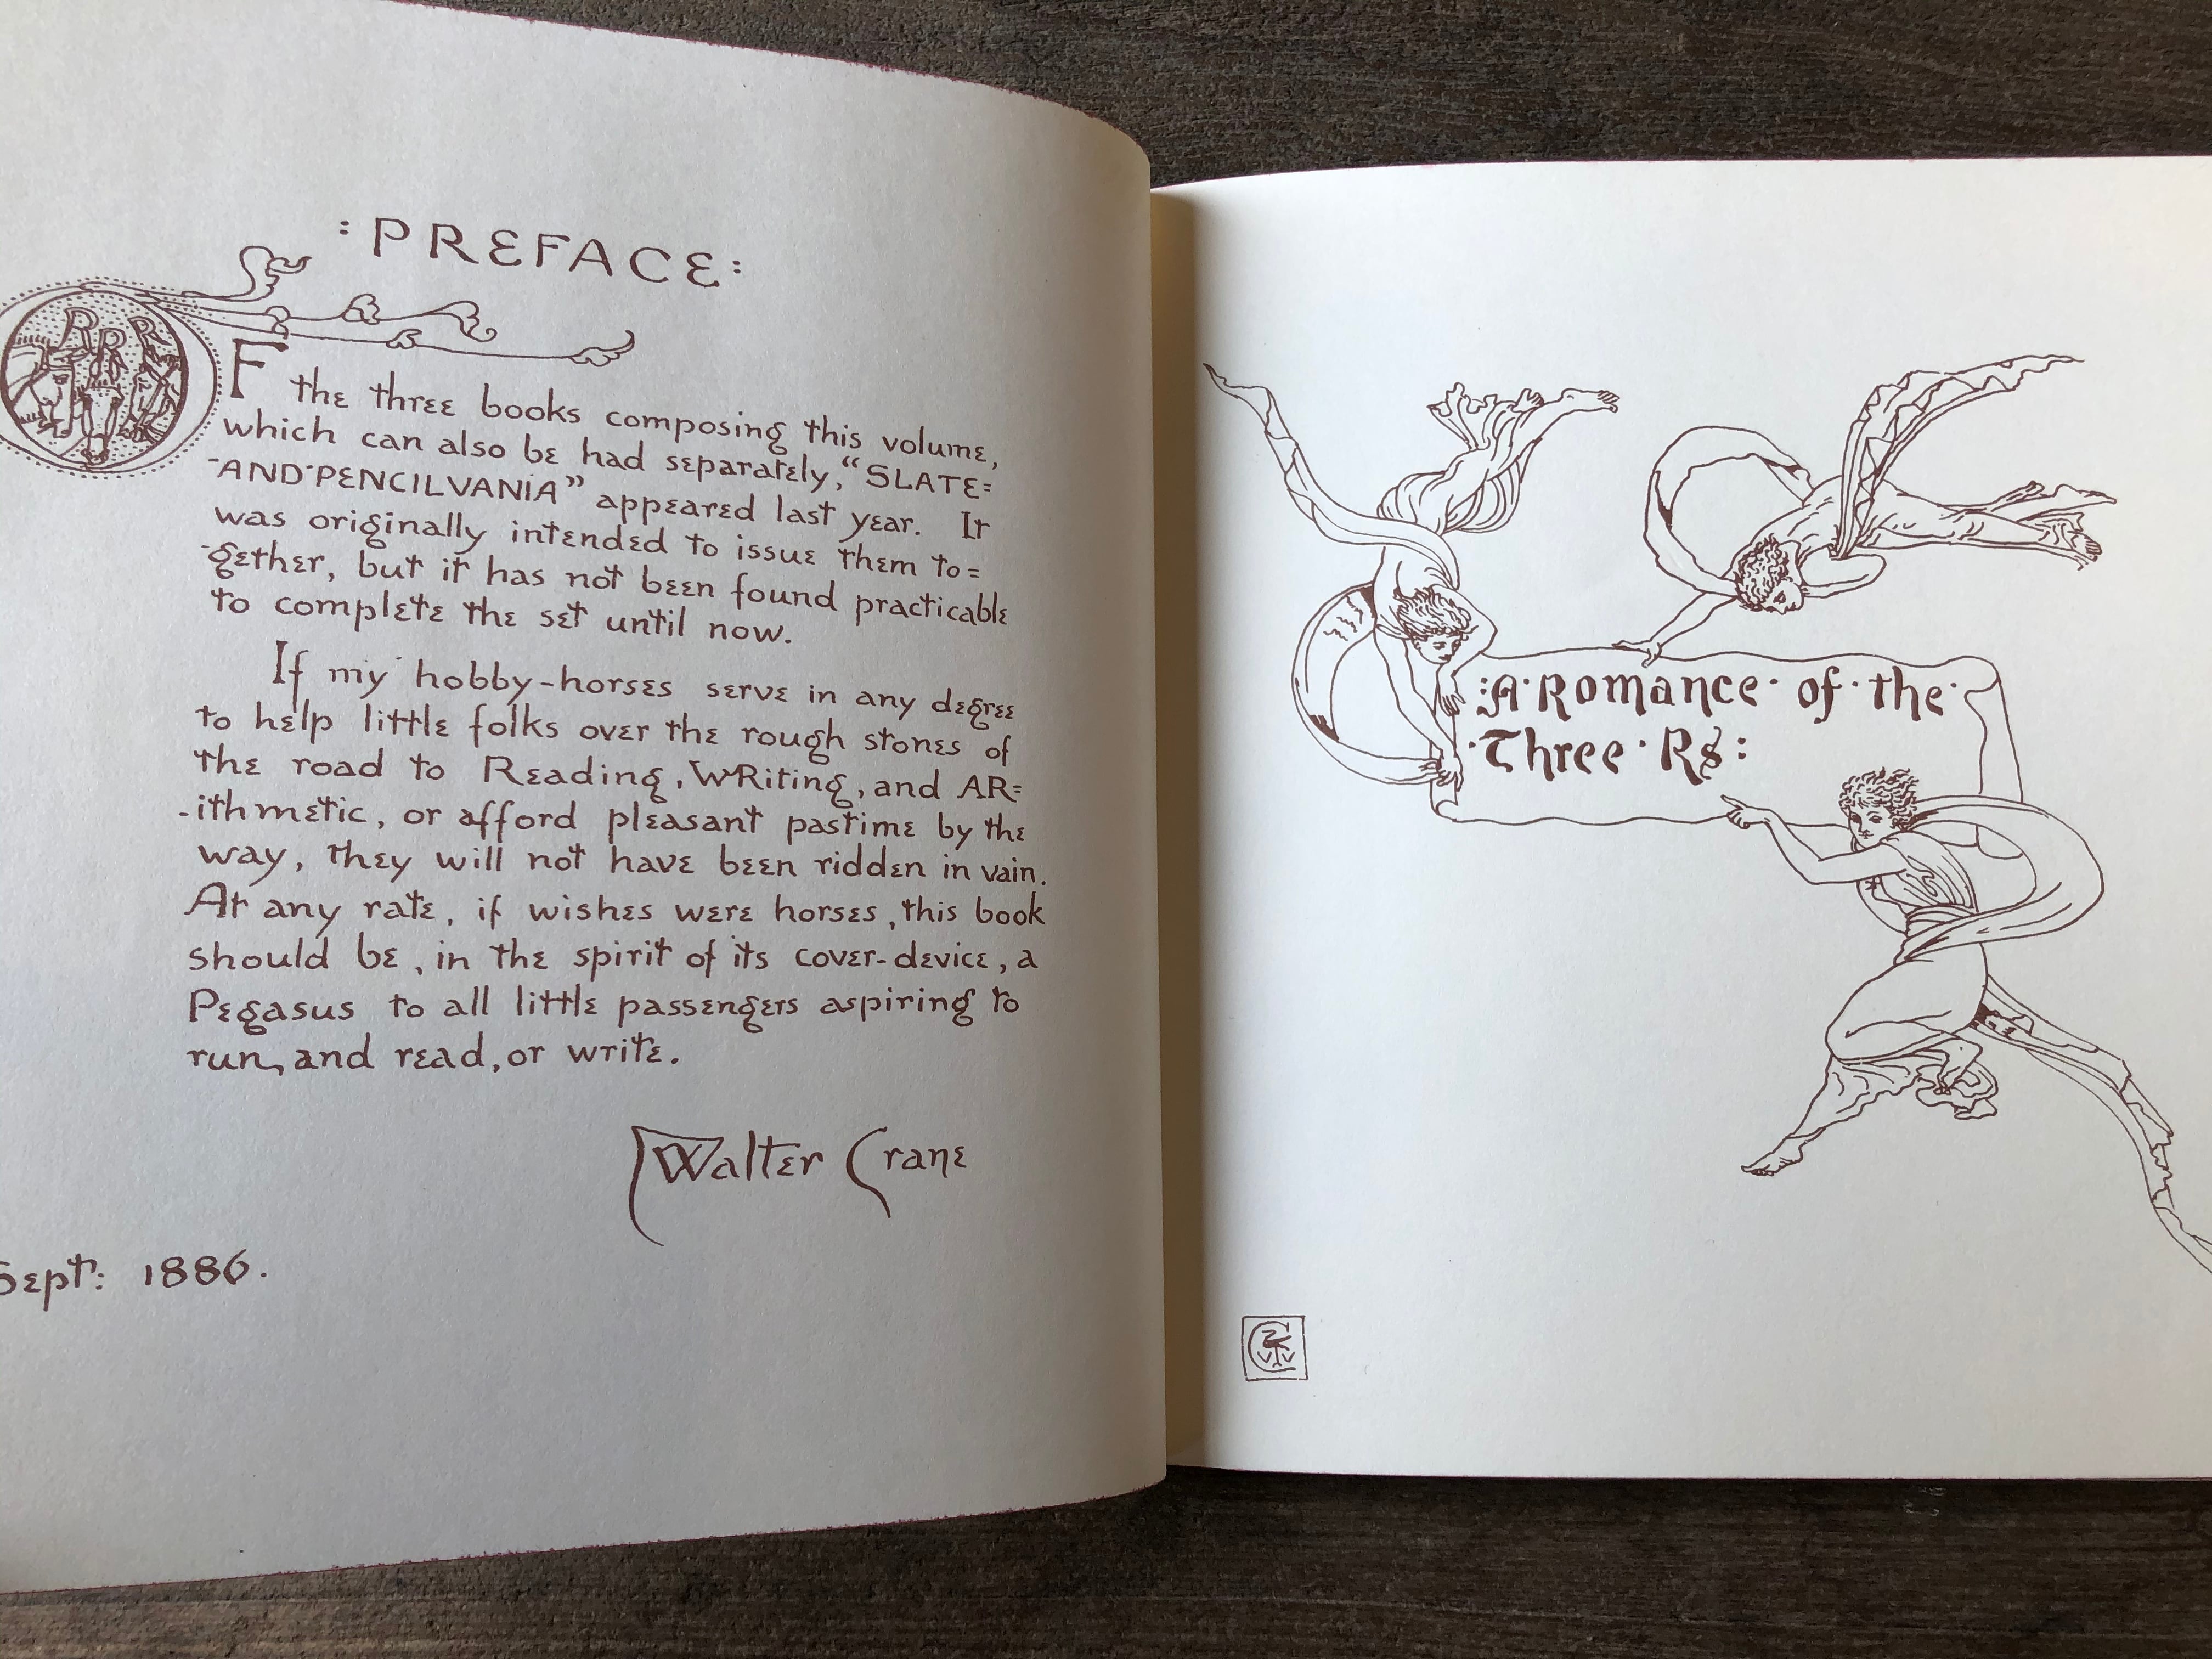 :PREFACE:
RRR
OF the three books composing this volume,
which can also be had separately, "SLATE=
-AND-PENCILVANIA" appeared last year. It
was originally intended to issue them to=
-gether, but it has not been found practicable
to complete the set until now.
If my hobby-horses serve in any degree
to help little folks over the rough stones of
the road to Reading, WRiting, and AR=
-ithmetic, or afford pleasant pastime by the
way, they will not have been ridden in vain.
At any rate, if wishes were horses, this book
should be, in the spirit of its cover-device, a
Pegasus to all little passengers aspiring to
run, and read, or write.
Walter Crane
Sept: 1886.
:A·Romance·of·the·
·Three·Rs: